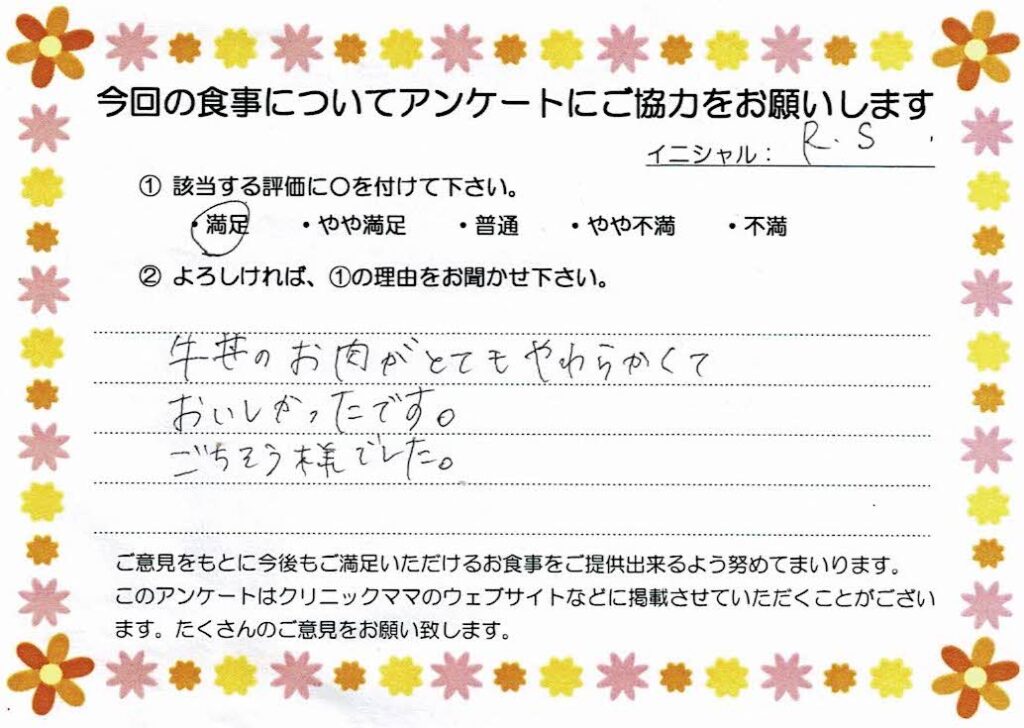 今回の食事についてアンケートにご協力をお願いします
イニシャル： R.S
① 該当する評価に○を付けて下さい。
・満足 ・やや満足 ・普通 ・やや不満 ・不満
② よろしければ、①の理由をお聞かせ下さい。
牛丼のお肉がとてもやわらかくて
おいしかったです。
ごちそう様でした。
ご意見をもとに今後もご満足いただけるお食事をご提供出来るよう努めてまいります。
このアンケートはクリニックママのウェブサイトなどに掲載させていただくことがござい
ます。たくさんのご意見をお願い致します。